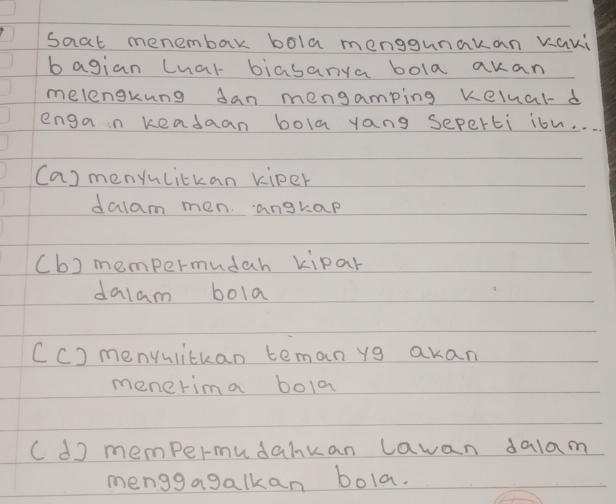 Saat menembak bola menggunakan kaki
bagian Luar biasanya bola akan
melengkung dan mengamping keluar d
enga n keadaan bola yang seperti itu....
(a) menyulitkan kiper
dalam men. angkap
(b) mempermudah kipar
dalam bola
(c) menyulitkan teman yg akan
menerima bola
(d) mempermudahkan Lawan dalam
menggagalkan bola.